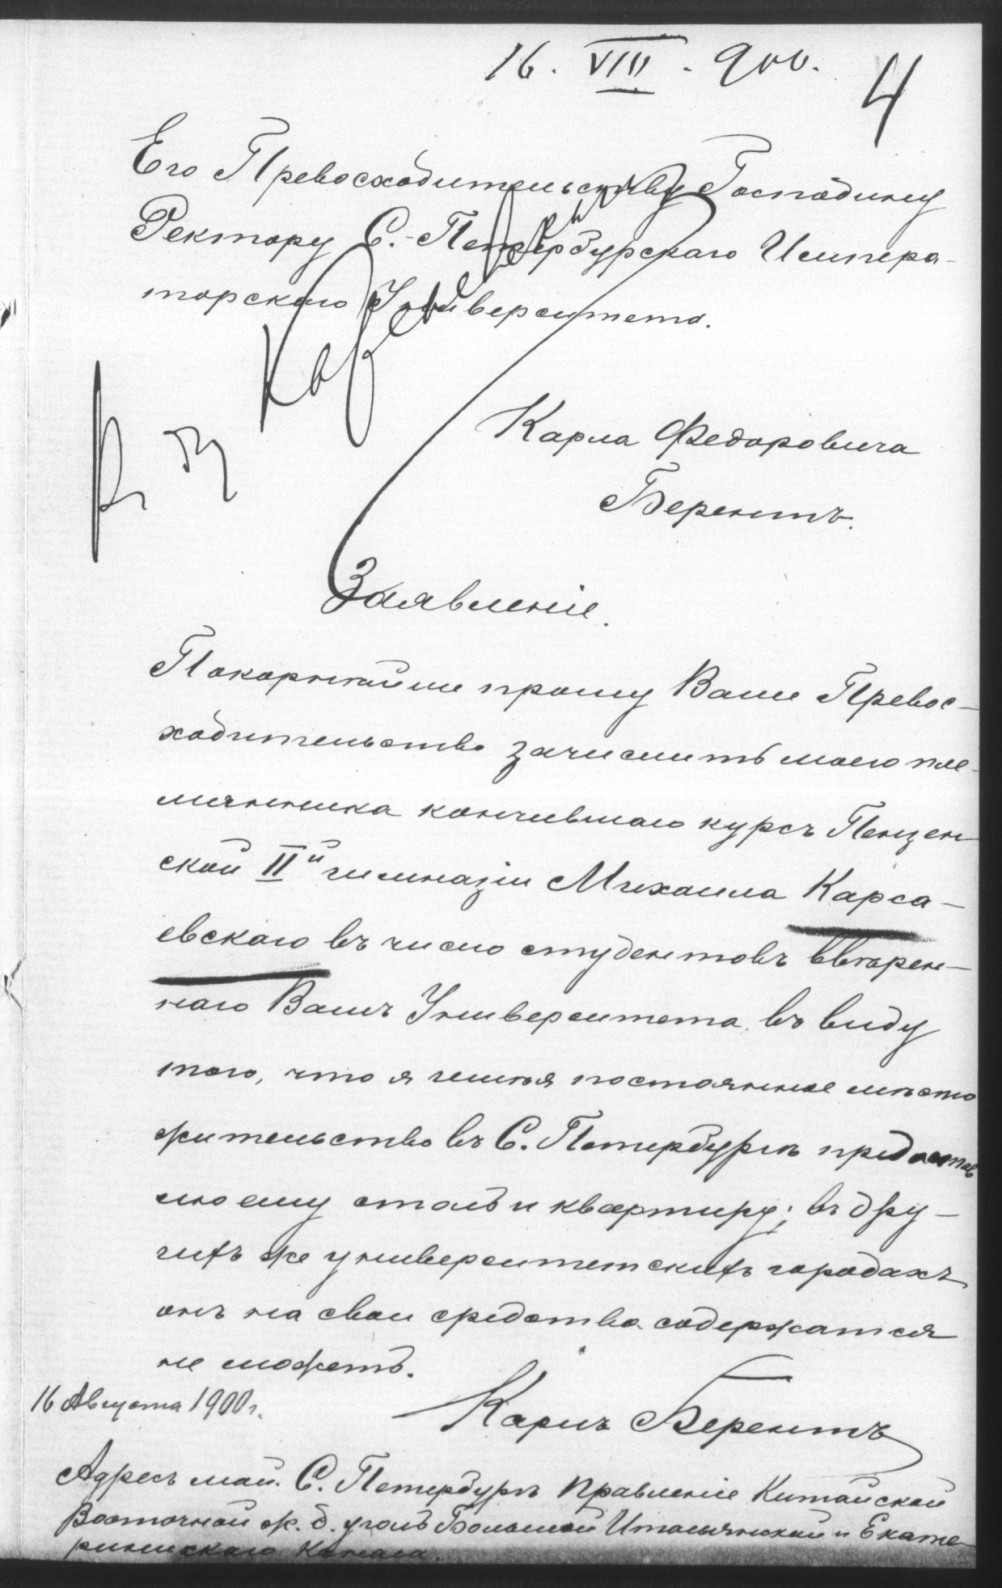 16. VIII. 900.
4
Его Превосходительству Господину
Ректору С.-Петербургскаго Импера-
торскаго Университета.
Карла Федоровича
Берентъ.
Заявленіе.
Покорнѣйше прошу Ваше Превос-
ходительство зачислить моего пле-
мянника кончившаго курсъ Пензен
ской IIй гимназіи Михаила Карса-
евскаго въ число студентовъ ввѣрен-
наго Вамъ Университета въ виду
того, что я имѣя постоянное мѣсто
жительство въ С. Петербургѣ предостав
лю ему столъ и квартиру; въ дру-
гихъ же университетскихъ городахъ
онъ на свои средства содержатся
не можетъ.
16 Августа 1900 г.
Карлъ Берентъ
Адресъ мой. С. Петербургъ Правленіе Китайской
Восточной ж. д. уголъ Большой Итальянской и Екате
рининскаго канала.